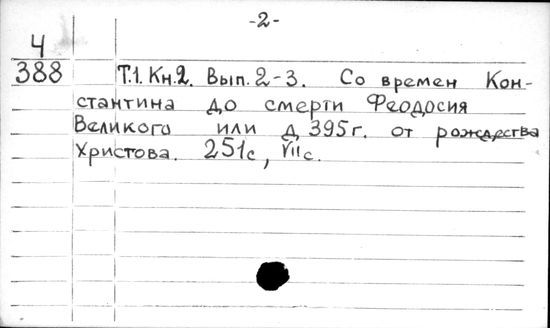 -2-
Ч
388 Т.1. Кн.2. Вып. 2-3. Со времен Кон-
стантина до смерти Феодосия
Великого или д 395г. от рождества
Христова. 251с, VIIс.